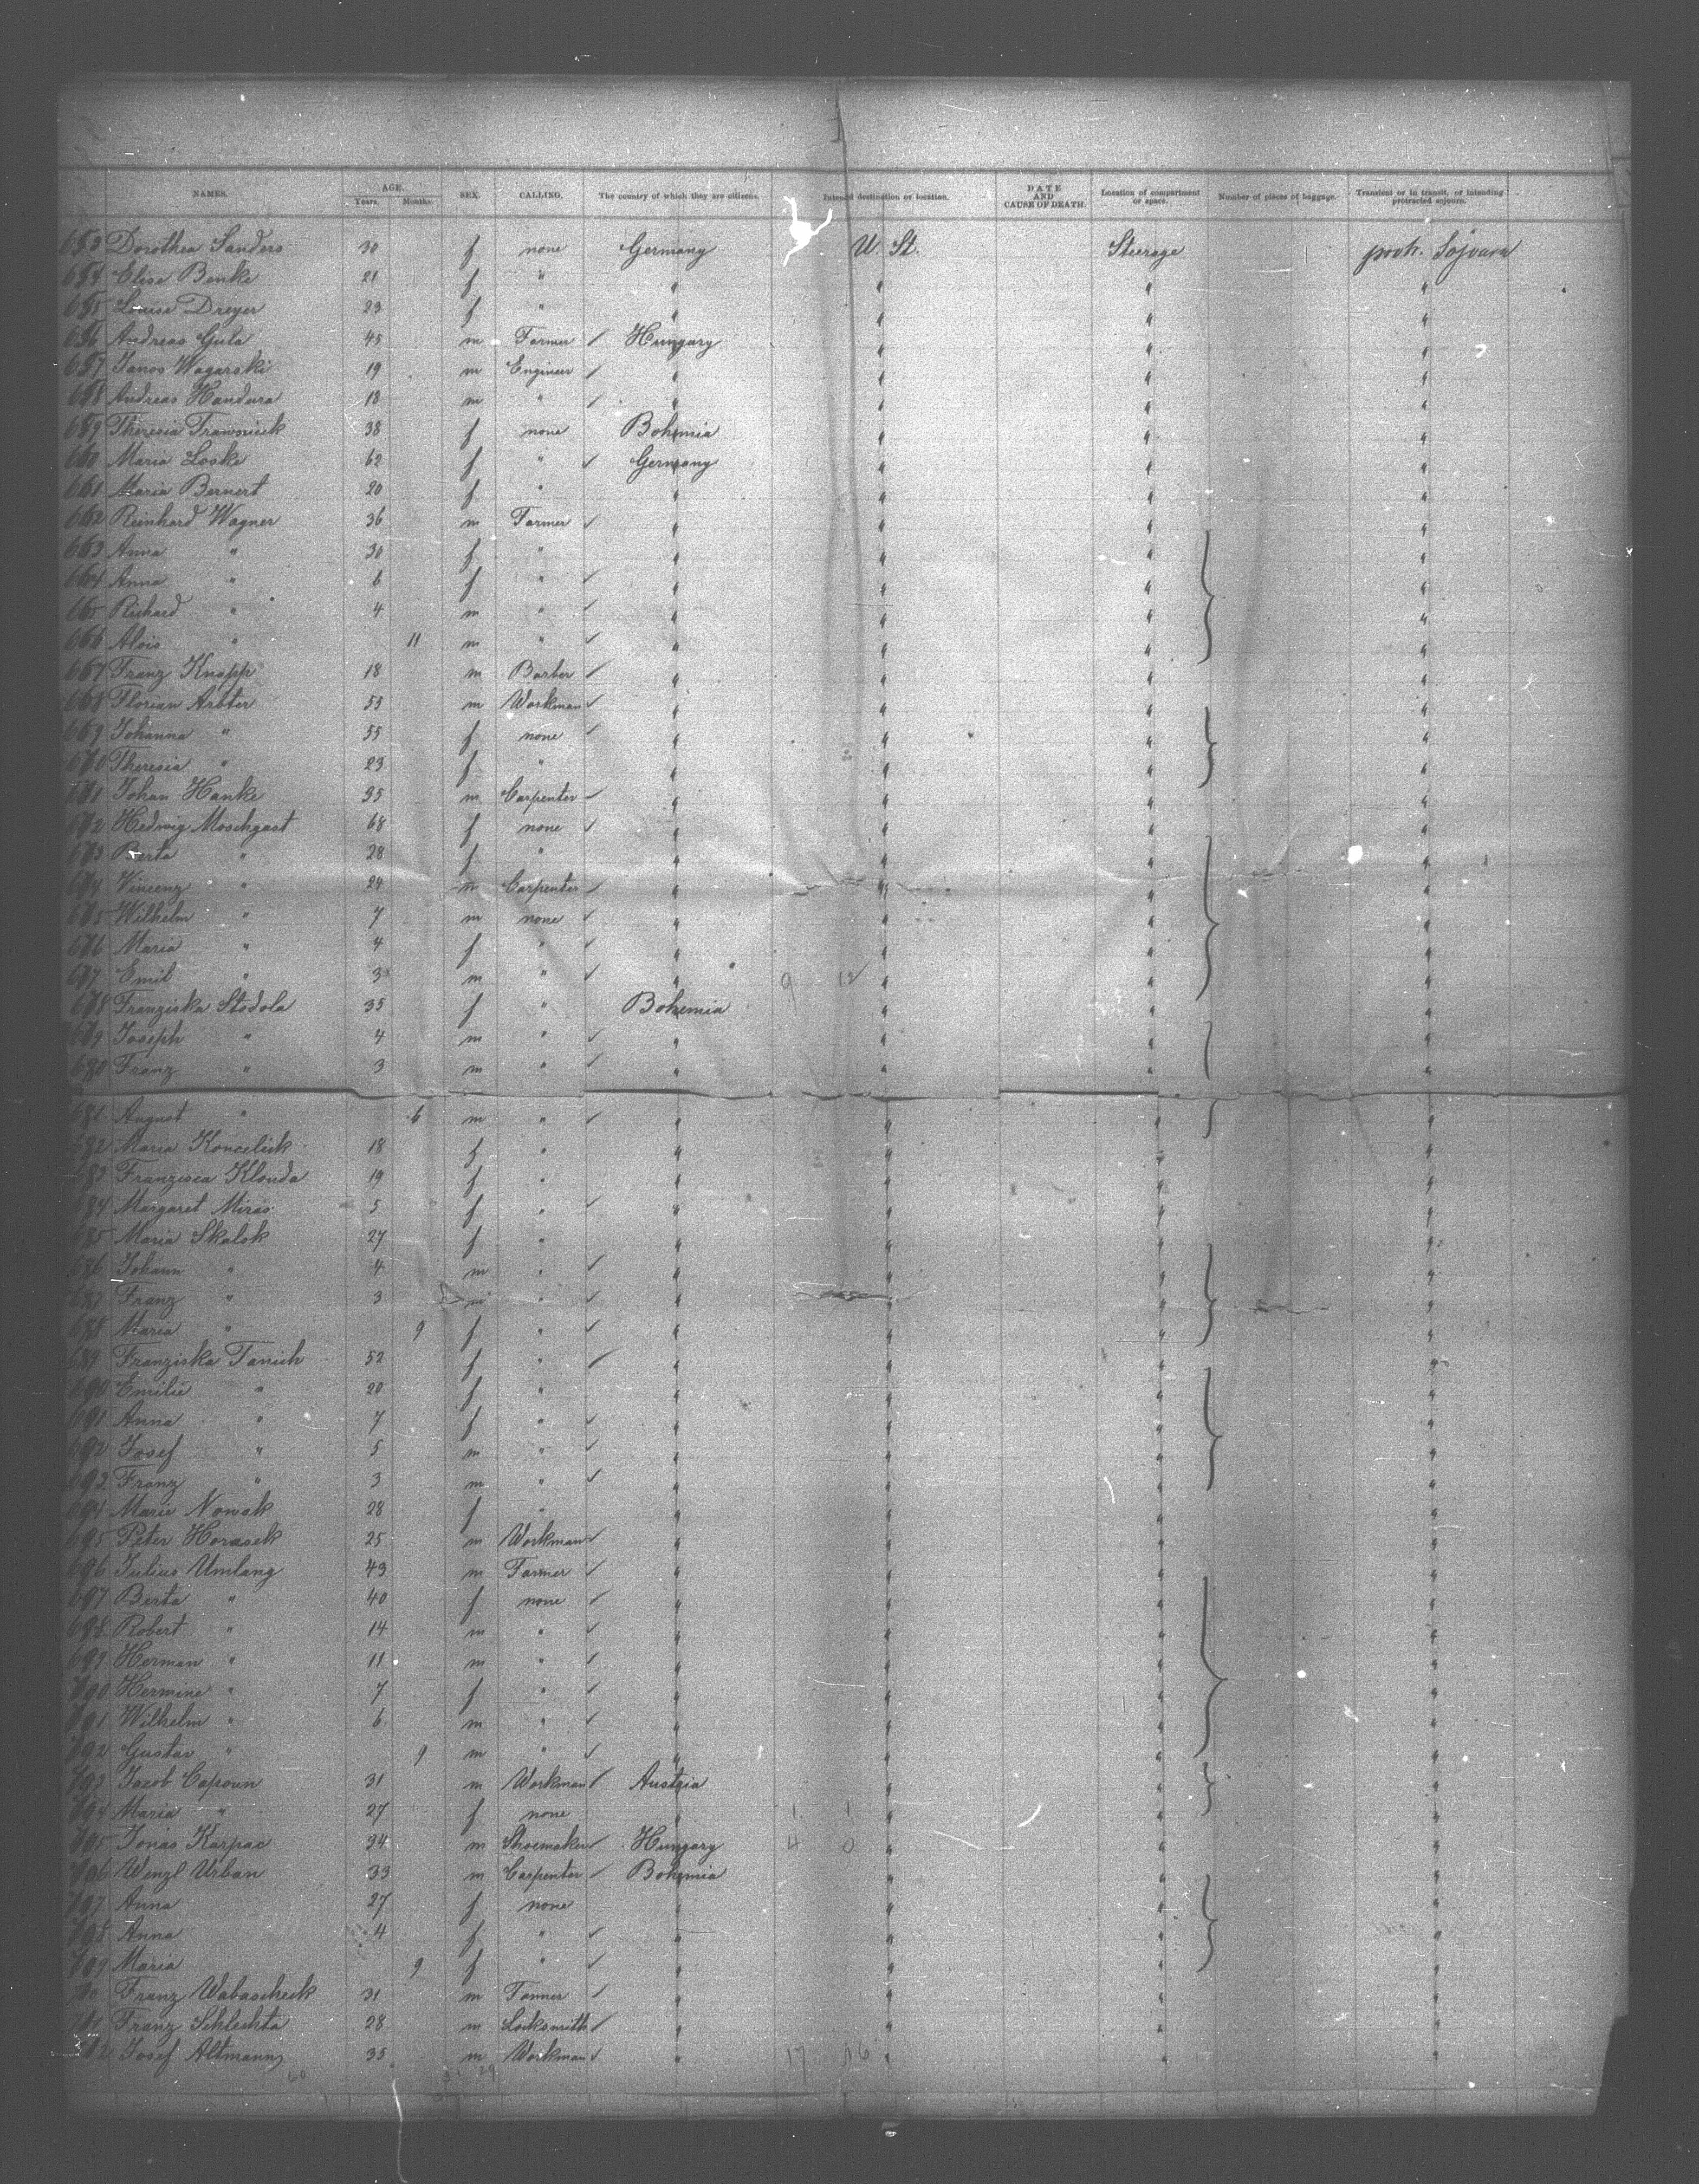 NAMES. AGE. Years. Months. SEX. CALLING. The country of which they are citizens. Intended destination or location. DATE AND CAUSE OF DEATH. Location of compartment or space. Number of pieces of baggage. Transient or in transit, or intending protracted sojourn.
653 Dorothea Sanders 30 f none Germany U. St. Steerage protr. Sojourn
654 Elise Benke 21 f " " " " "
655 Louise Dreyer 23 f " " " " "
656 Andreas Gula 45 m Farmer Hungary " " "
657 Janos Wagarski 19 m Engineer " " " "
658 Andreas Handura 18 m " " " " "
659 Theresia 38 f none Bohemia " " "
660 Maria Loske 62 f " Germany " " "
661 Maria Bernert 20 f " " " " "
662 Reinhard Wagner 36 m Farmer " " " "
663 Anna " 30 f " " " " "
664 Anna " 6 f " " " " "
665 Richard " 4 m " " " " "
666 Alois " 11 m " " " " "
667 Franz Knapp 18 m Barber " " " "
668 Florian Arbter 53 m Workman " " " "
669 Johanna " 55 f none " " " "
670 Theresia " 23 f " " " " "
671 Johan Hanke 35 m Carpenter " " " "
672 Hedwig Moschgast 68 f none " " " "
673 Berta " 28 f " " " " "
674 Vincenz " 24 m Carpenter " " " "
675 Wilhelm " 7 m none " " " "
676 Maria " 4 f " " " " "
677 Emil " 3 m " " 9 12 " " "
678 Franziska Stodola 35 f " Bohemia " " "
679 Joseph " 4 m " " " " "
680 Franz " 3 m " " " " "
681 August " 6 m " " " " "
682 Maria Koncelick 18 f " " " " "
683 Franzisca Klouda 19 f " " " " "
684 Margaret Miras 5 f " " " " "
685 Maria Skalok 27 f " " " " "
686 Johann " 4 m " " " " "
687 Franz " 3 m " " " " "
688 Maria " 9 f " " " " "
689 Franziska Tanich 52 f " " " " "
690 Emilie " 20 f " " " " "
691 Anna " 7 f " " " " "
692 Josef " 5 m " " " " "
693 Franz " 3 m " " " " "
694 Marie Nowak 28 f " " " " "
695 Peter Horasek 25 m Workman " " " "
696 Julius Umlang 43 m Farmer " " " "
697 Berta " 40 f none " " " "
698 Robert " 14 m " " " " "
699 Herman " 11 m " " " " "
700 Hermine " 7 f " " " " "
701 Wilhelm " 6 m " " " " "
702 Gustav " 9 m " " " " "
703 Jacob Capoun 31 m Workman Austria " " "
704 Maria " 27 f none 1 1 " " "
705 Jonas Karpac 34 m Shoemaker Hungary 4 0 " " "
706 Wenzl Urban 33 m Carpenter Bohemia " " "
707 Anna 27 f none " " " "
708 Anna 4 f " " " " "
709 Maria 9 f " " " " "
710 Franz Wabascheck 31 m Tanner " " " "
711 Franz Schlechta 28 m Locksmith " " " "
712 Josef Altmann 35 m Workman " 17 16 " " "
60 31 29